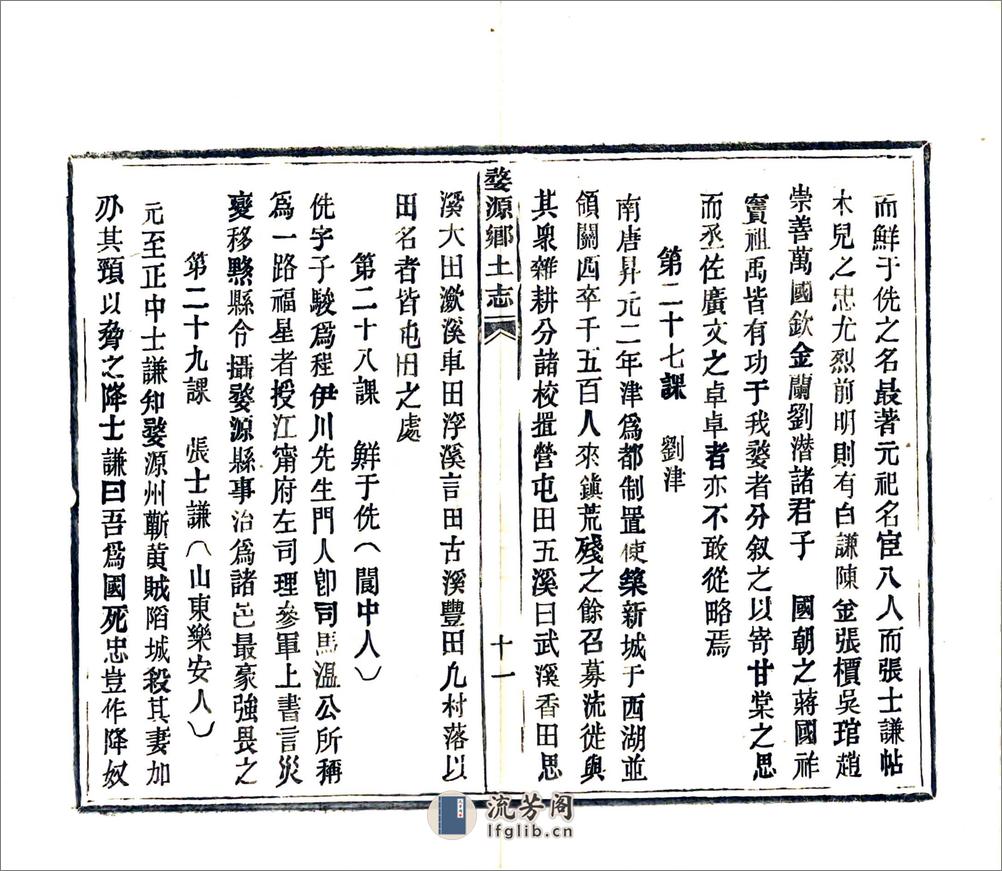 而鮮于侁之名最著元祀名宦八人而張士謙帖
木兒之忠尤烈前明則有白謙陳金張櫝吳琯趙
崇善萬國欽金蘭劉潛諸君子　國朝之蔣國祚
竇祖禹皆有功于我婺者分叙之以寄甘棠之思
而丞佐廣文之卓卓者亦不敢從略焉
第二十七課　劉津
南唐昇元二年津爲都制置使築新城于西湖並
領關西卒千五百人來鎮荒殘之餘召募流徙與
其衆雜耕分諸校㨿營屯田五溪曰武溪香田思
婺源鄉土志
十一
溪大田潋溪車田浮溪言田古溪豐田凡村落以
田名者皆屯田之處
第二十八課　鮮于侁（閬中人）
侁字子駿爲程伊川先生門人卽司馬溫公所稱
爲一路福星者授江甯府左司理參軍上書言災
變移黟縣令攝婺源縣事治爲諸邑最豪強畏之
第二十九課　張士謙（山東樂安人）
元至正中士謙知婺源州蘄黄賊陷城殺其妻加
刅其頸以脅之降士謙曰吾爲國死忠豈作降奴
流芳阁
lfglib.cn